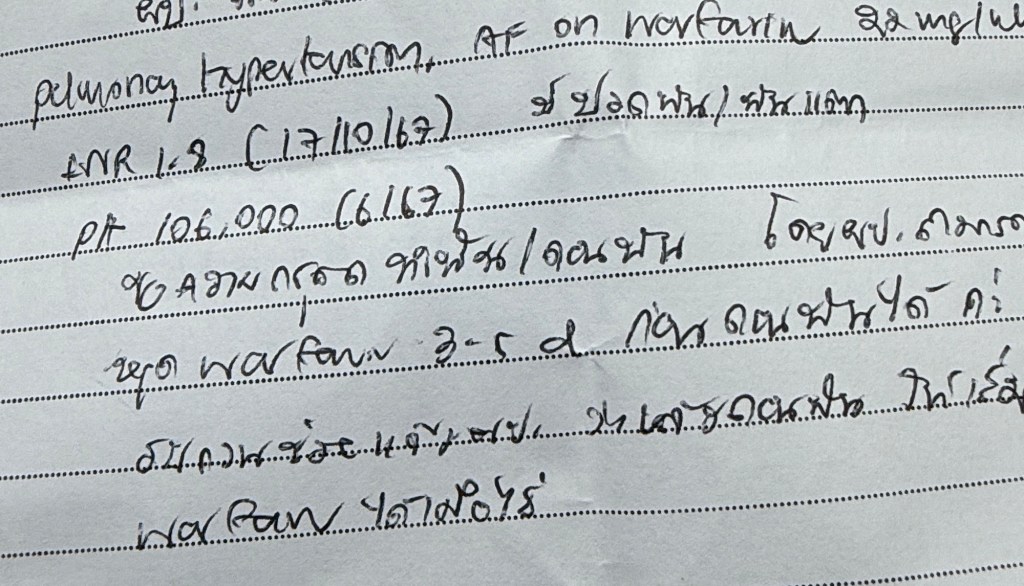 ผป.
pulmonary hypertension, AF on warfarin 22 mg/wk
INR 1.8 (17/10/67) มี ปวดฟัน/ฟันแตก
plt 106,000 (6/67)
ขอความกรุณา ทำฟัน/ถอนฟัน โดยผป. สามารถ
หยุด warfarin 3-5 d ก่อนถอนฟันได้ ค่ะ
รบกวนช่วยแจ้งผป. ว่าหลังถอนฟัน ให้เริ่ม
warfarin ได้เมื่อไร่